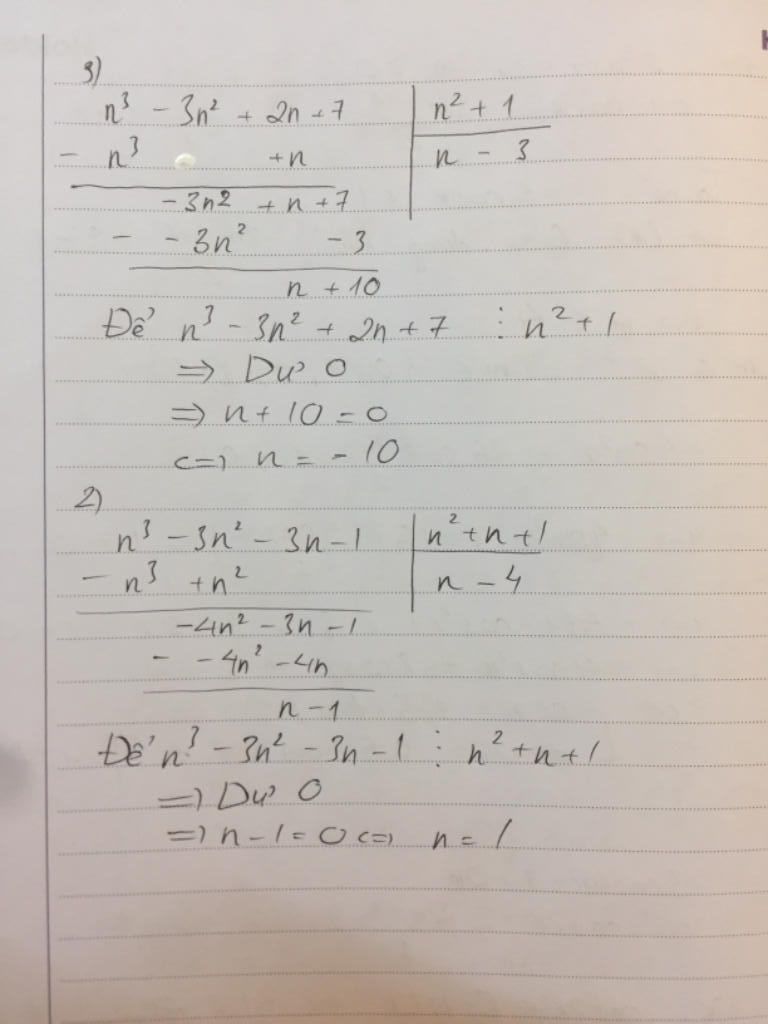 3)
n³ - 3n² + 2n + 7 | n² + 1
- n³ + n | n - 3
-3n² + n + 7
- -3n² - 3
n + 10
Để n³ - 3n² + 2n + 7 ⋮ n² + 1
=> Dư 0
=> n + 10 = 0
<=> n = -10
2)
n³ - 3n² - 3n - 1 | n² + n + 1
- n³ + n² | n - 4
-4n² - 3n - 1
- -4n² - 4n
n - 1
Để n³ - 3n² - 3n - 1 ⋮ n² + n + 1
=> Dư 0
=> n - 1 = 0 <=> n = 1